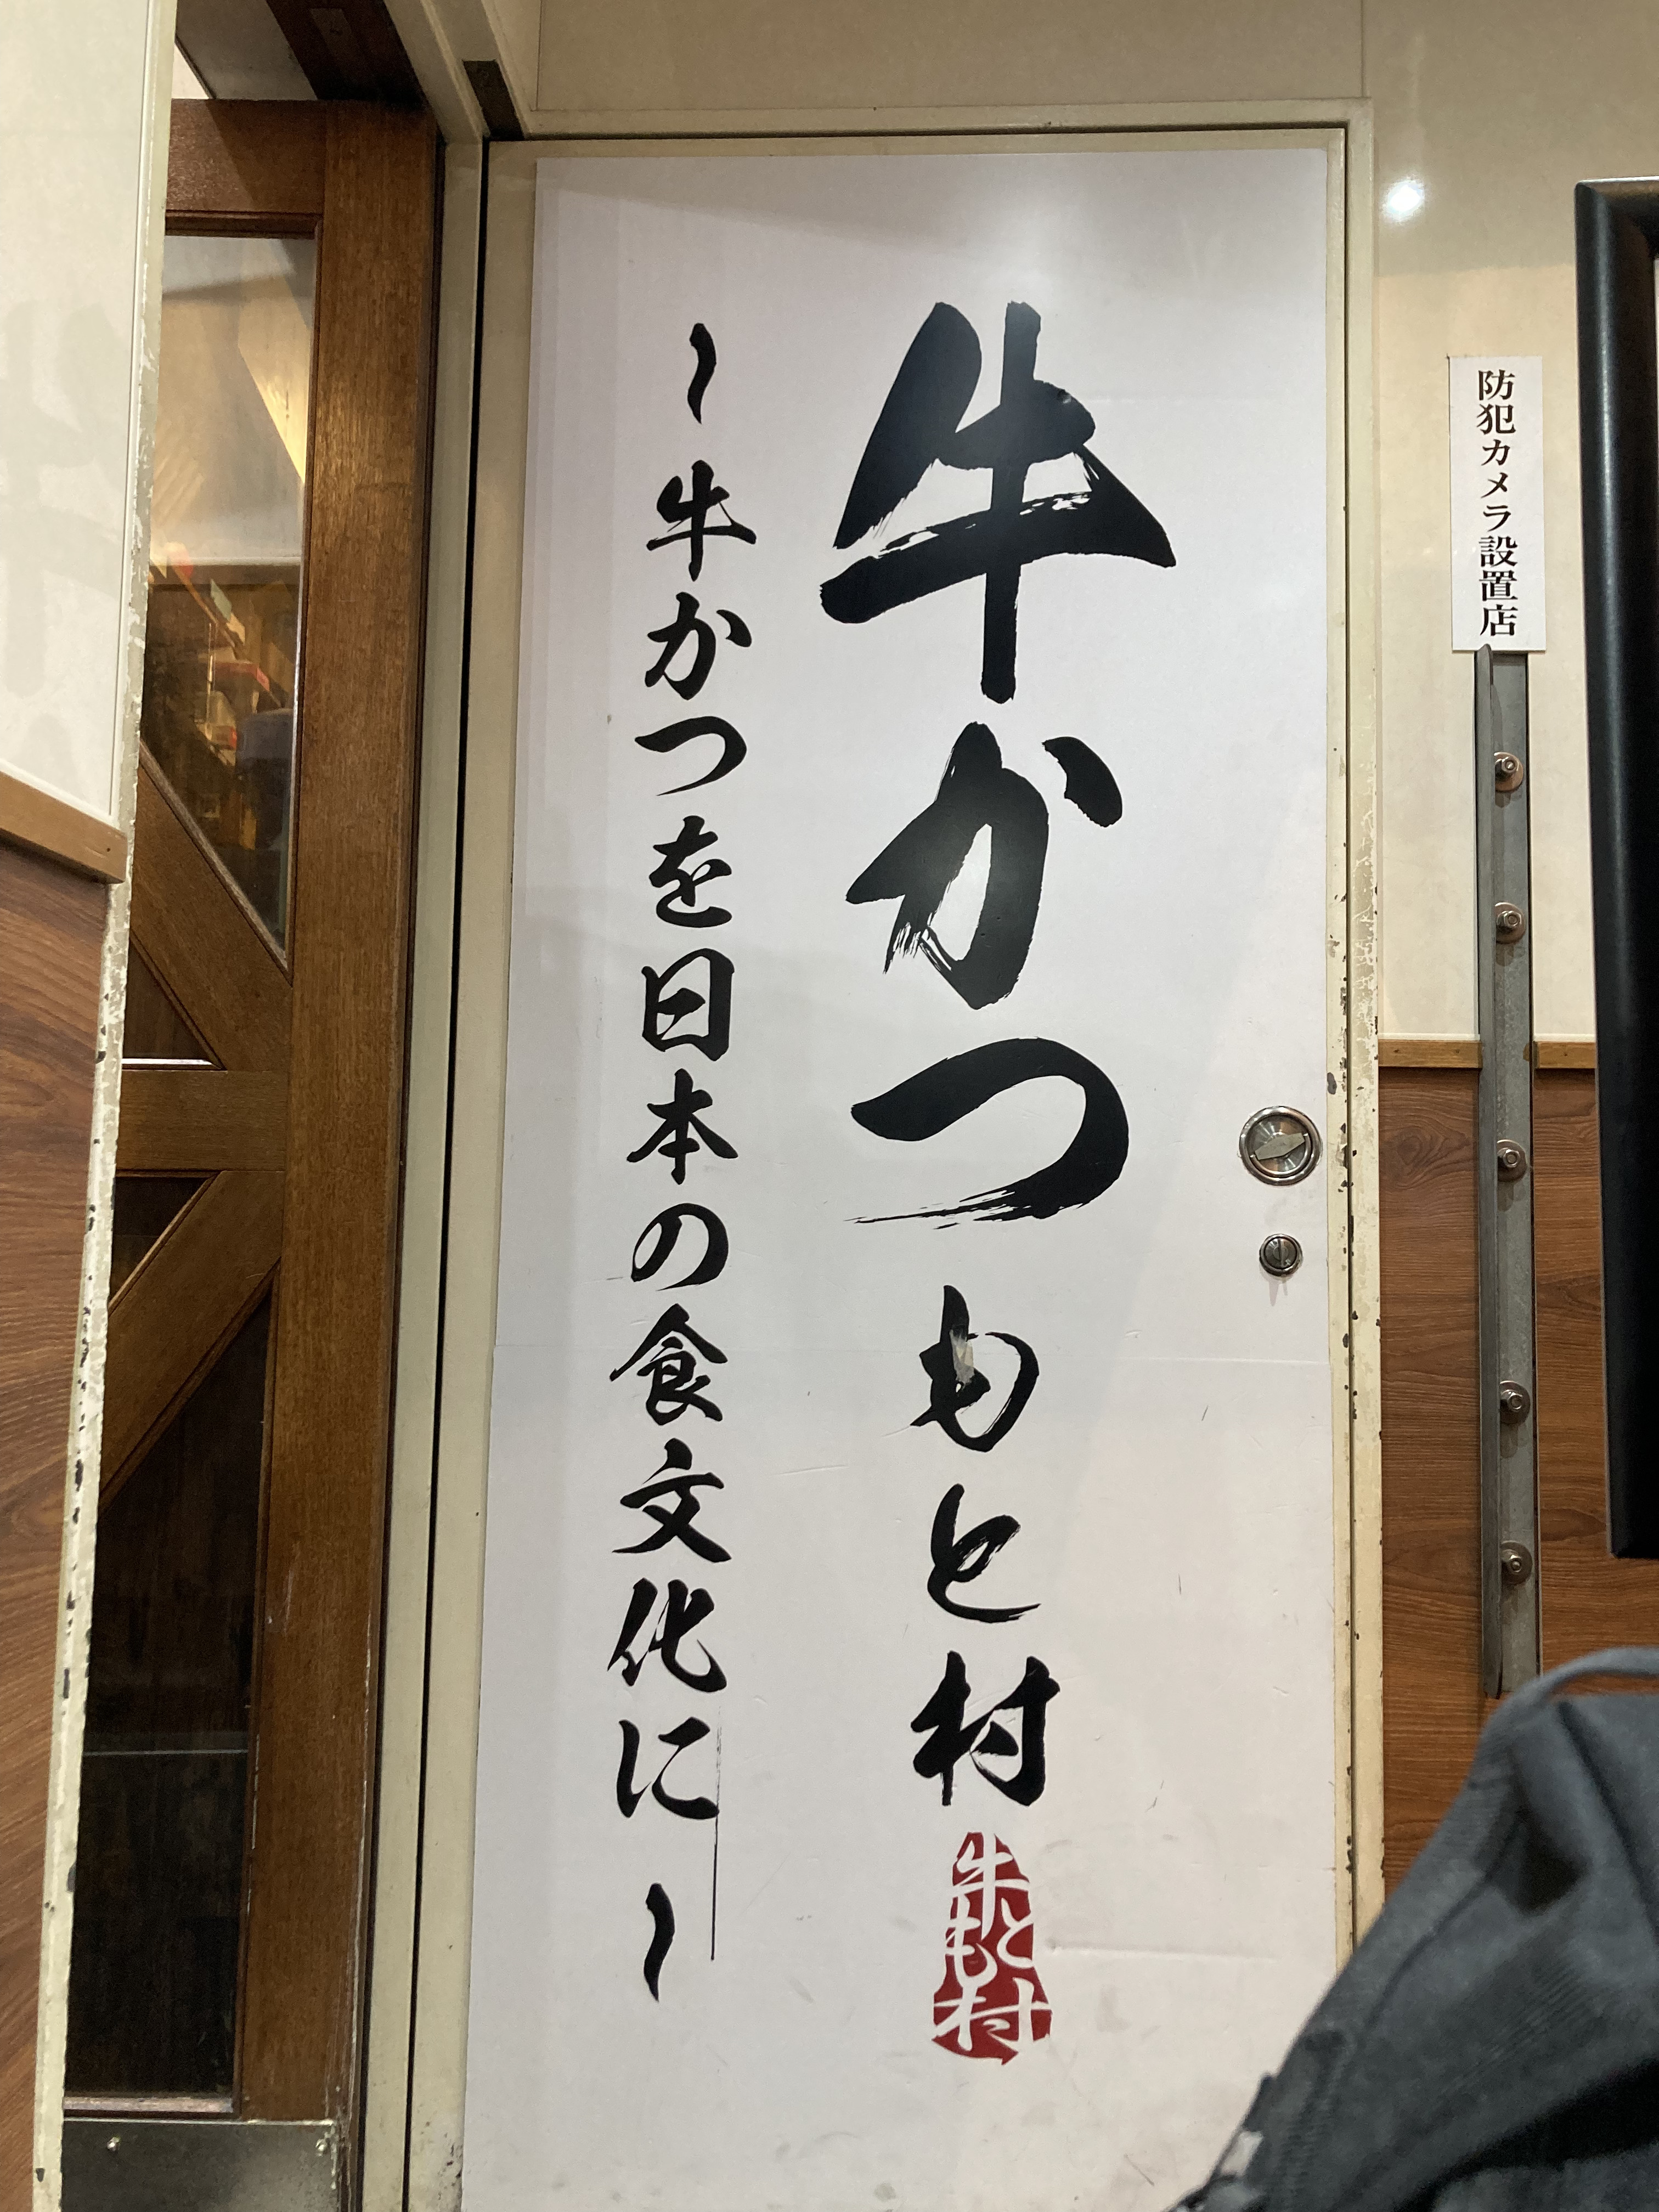 牛かつもと村
〜牛かつを日本の食文化に〜
牛もと村
防犯カメラ設置店